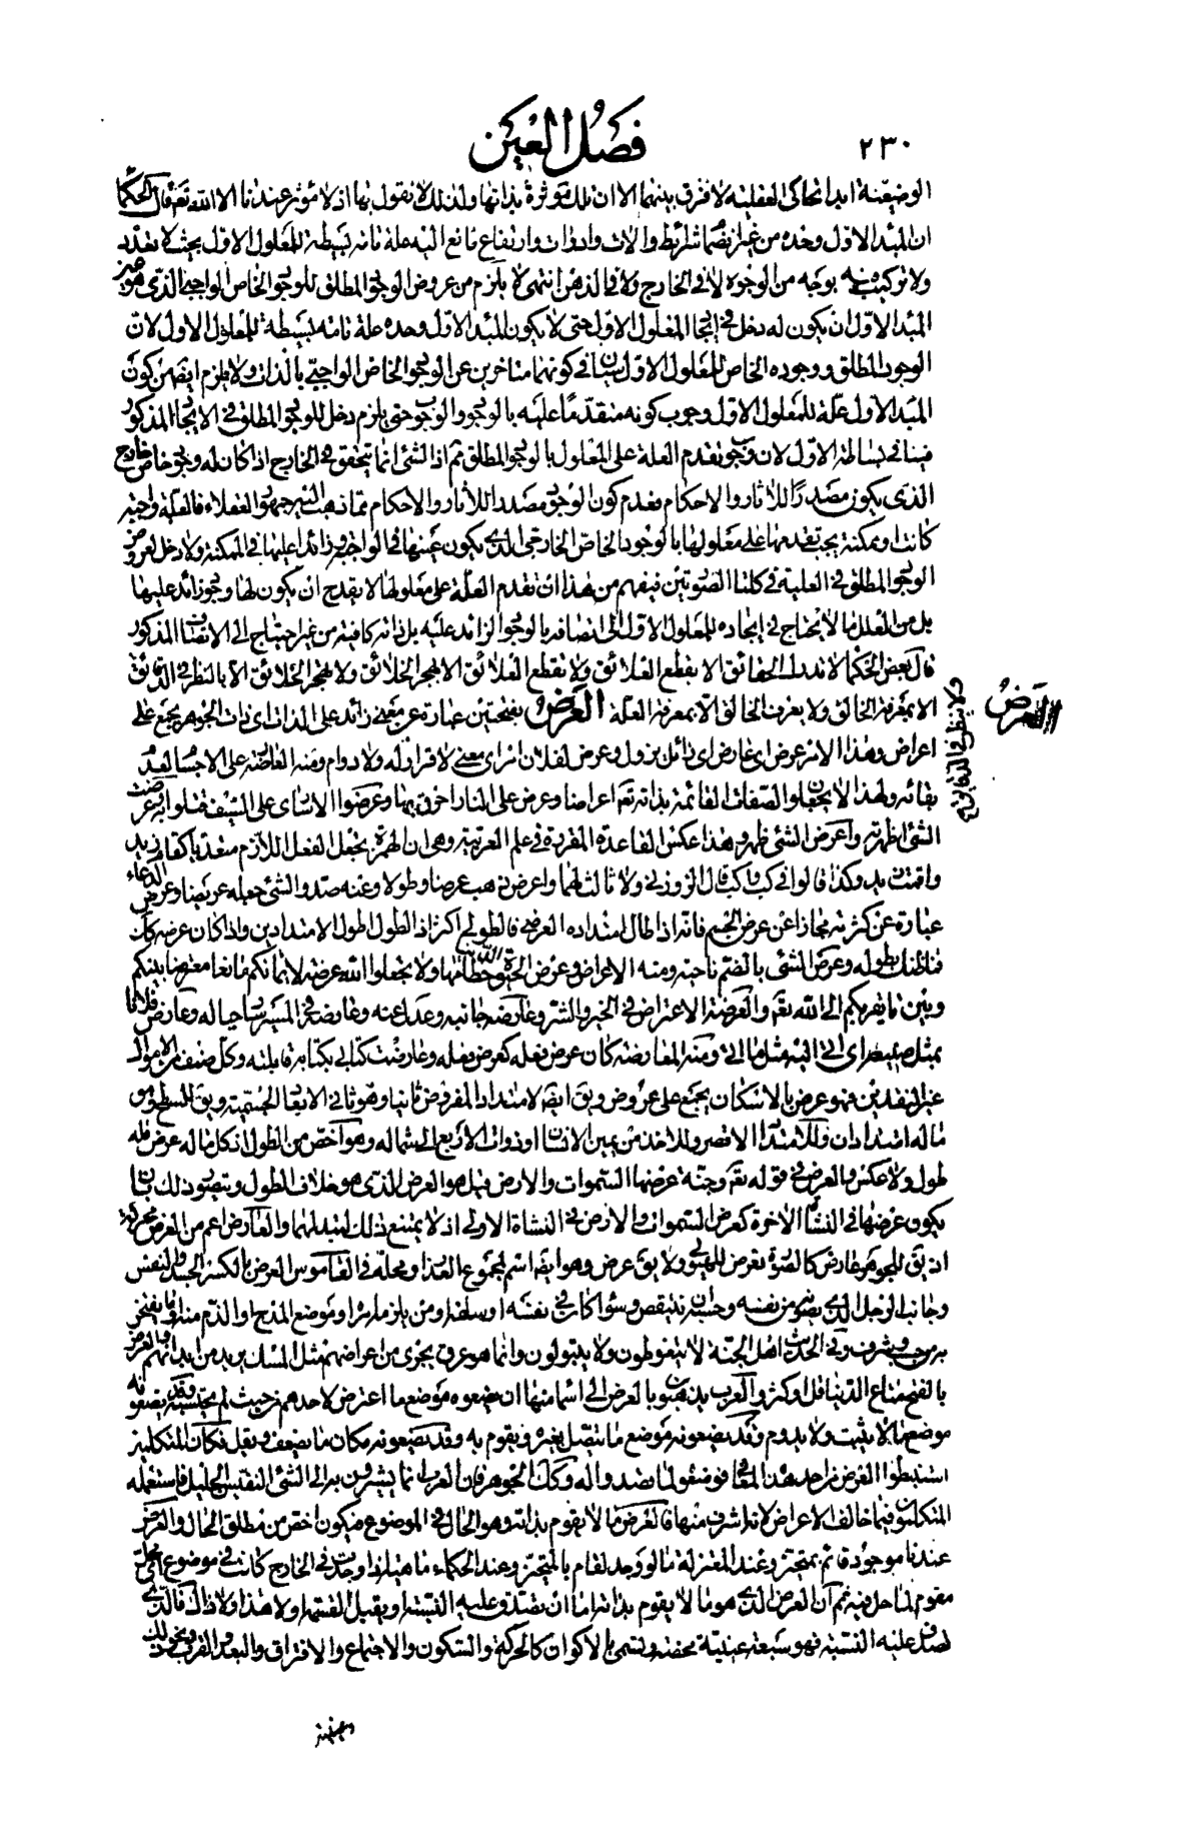 ٢٣٠
فَصْلُ الْعَيْن
الوضعيّة ابدا تحاكى العقلية لا فرق بينهما الا ان تلك مؤثرة بذاتها ولذلك لا نقول بها اذ لا مؤثر عندنا الا الله تعم قال الحكماء
ان المبدأ الاول وحده من غير انضمام شرائط والات وادوات وارتفاع مانع اليه علة تامة بسيطة للمعلول الاول بحيث لا تعدد
ولا تركيب فيه بوجه من الوجوه لا في الخارج ولا في الذهن انتهى لا يلزم من عروض الوجود المطلق للوجود الخاص الواجبي الذى هو عين
المبدأ الاول ان يكون له دخل في ايجاد المعلول الاول حتى لا يكون المبدأ الاول وحده علة تامة بسيطة للمعلول الاول لان
الوجود المطلق ووجوده الخاص للمعلول الاول سيان في كونهما متأخرين عن الوجود الخاص الواجبي بالذات ولا يلزم ايضا من كون
المبدأ الاول علّة للمعلول الاول وجوب كونه متقدمًا عليه بالوجود والوجوب حتى يلزم دخل للوجود المطلق في الايجاد المذكور
فينافي بساطة الاول لان وجوب تقدم العلة على المعلول بالوجود المطلق ثم اذ الشئ انما يتحقق في الخارج اذا كان له وجود خاص خارج
الذى يكون مصدرًا للاثار والاحكام بعدم كون الوجود مصدرا للاثار والاحكام مما ذهب اليه جمهور العقلاء فالعلة واجبة
كانت او ممكنة يجب تقدمها على معلولها بالوجود الخاص الخارجي الذى يكون عينها في الواجب وزائدا عليها في الممكنة ولا دخل لعروض
الوجود المطلق في العلية في كلتا الصورتين فيفهم من هذا ان تقدم العلّة على معلولها لا يقدح ان يكون لها وجود زائد عليها
بل من العلل ما لا يحتاج في ايجاده للمعلول الاول الى اتصافه بالوجود الزائد عليه بل ذاته كافية من غير احتياج الى الاتصاف المذكور
قال بعض الحكماء لا تدرك الحقائق الا بقطع العلائق ولا تقطع العلائق الا بهجر الخلائق ولا تهجر الخلائق الا بالنظر في الدقائق
ولا ينظر في الدقائق
الا بمعرفة الخالق ولا يعرف الخالق الا بمعرفة العلّة العَرَض بفتحتين عبارة عن معنى زائد على الذات اى ذات الجوهر يجمع على
العَرَض
اعراض وهذا الامر عرض اى عارض اى زائل يزول وعرض لفلان امر اى معنى لا قرار له ولا دوام ومنه العارضة على الاجسام لعدم
بقائه ولهذا لا يجعلون الصفات القائمة بذاته تعم اعراضا وعرض على النار احرق بها وعرضوا الاسارى على السّيف قتلوا به عرضت
الشئ اظهرته واعرض الشئ ظهر وهذا عكس القاعدة المقررة في علم العربية وهي ان الهمزة تجعل الفعل اللازم متعديا كقام زيد
واقمت زيدا وكذا قالوا في كب واكب قال الزوزني ولا ثالث لهما واعرض ذهب عرضا وطولا وعنه صد والشئ جعله عريضا وعرض الدعاء
عبارة عن كثرته مجازا عن عرض الجسم فانه اذا طال امتداده العرضي فالطولي اكثر اذ الطول اطول الامتدادين واذا كان عرضه كذلك
فما ظنك بطوله وعرض الشئ بالضم ناحيته ومنه الاعراض وعرض الحيوة الدنيا حطامها ولا تجعلوا الله عرضة لايمانكم مانعا معترضا بينكم
وبين ما يقربكم الى الله تعم والعرضة الاعتراض في الخير والشر وعارضه جانبه وعدل عنه وعارضه في المسير سار حياله وعارض فلانا
بمثل صنيعه اى اتى اليه مثل ما اتى ومنه المعارضة كان عرض فعله كعرض فعله وعارضت كتابي بكتابه قابلته وكل صنف من الاموال
غير النقدين فهو عرض بالاسكان يجمع على عروض ويق ايضا لامتداد المفروض ثانيا وهو ثاني الابعاد الجسمية ويق للسطح وهو
ما له امتدادان وللامتداد الاقصر وللاخذ من يمين الانسان او ذوات الاربع الى شماله وهو اخص من الطول اذ كل ما له عرض فله
طول ولا عكس والعرض في قوله تعم وجنة عرضها السموات والارض قيل هو العرض الذى هو خلاف الطول ويتصور ذلك بان
يكون عرضها في النشأة الاخرة كعرض السموات والارض في النشاة الاولى اذ لا يمتنع ذلك لتبدلهما والعارض اعم من العرض محركة
اذ يق للجوهر عارض كالصورة تعرض للهيولى ولا يق عرض وهو ايضا اسم لمجموع الغذاء ومحله في القاموس العرض بالكسر الجسد والنفس
وجانب الرجل الذى يصونه من نفسه وحسبه ان ينتقص وسواء كان في نفسه او سلفه او من يلزمه امره او موضع المدح او الذم منه او ما يفتخر
به من حسب وشرف وفي الحديث اهل الجنة لا يتغوطون ولا يبولون وانما هو عرق يجرى من اعراضهم مثل المسك يريد من ابدانهم والعرض
بالفتح متاع الدنيا قل او كثر والعرب يذهبون بالعرض الى اسماء منها ان يضعوه موضع ما اعترض لاحدهم من حيث لم يحتسبه وقد يضعونه
موضع ما لا يثبت ولا يدوم وقد يضعونه موضع ما يتصل بغيره ويقوم به وقد يضعونه مكان ما يضعف ويقل فكان المتكلمين
استنبطوا العرض من احد هذه المعاني فوضعوه لما قصدوا له وكذلك الجوهر فان العرب انما يشيرون به الى الشئ النفيس الجليل فاستعمله
المتكلمون فيما خالف الاعراض لانه اشرف منها فالعرض ما لا يقوم بذاته وهو الحال في الموضوع فيكون اخص من مطلق الحال والعرض
عندنا موجود قائم بمتحيز وعند المعتزلة ما لو وجد لقام بالمتحيز وعند الحكماء ماهية اذا وجدت في الخارج كانت في موضوع اى محل
مقوم لما حل فيه ثم ان العرض الذى هو ما لا يقوم بذاته اما ان تصدق عليه النسبة او يقبل القسمة او لا هذا ولا ذاك فالذى
تصدق عليه النسبة فهو سبعة عينية محضة وتسمى بالاكوان كالحركة والسكون والاجتماع والافتراق والبعد والقرب ونحو ذلك